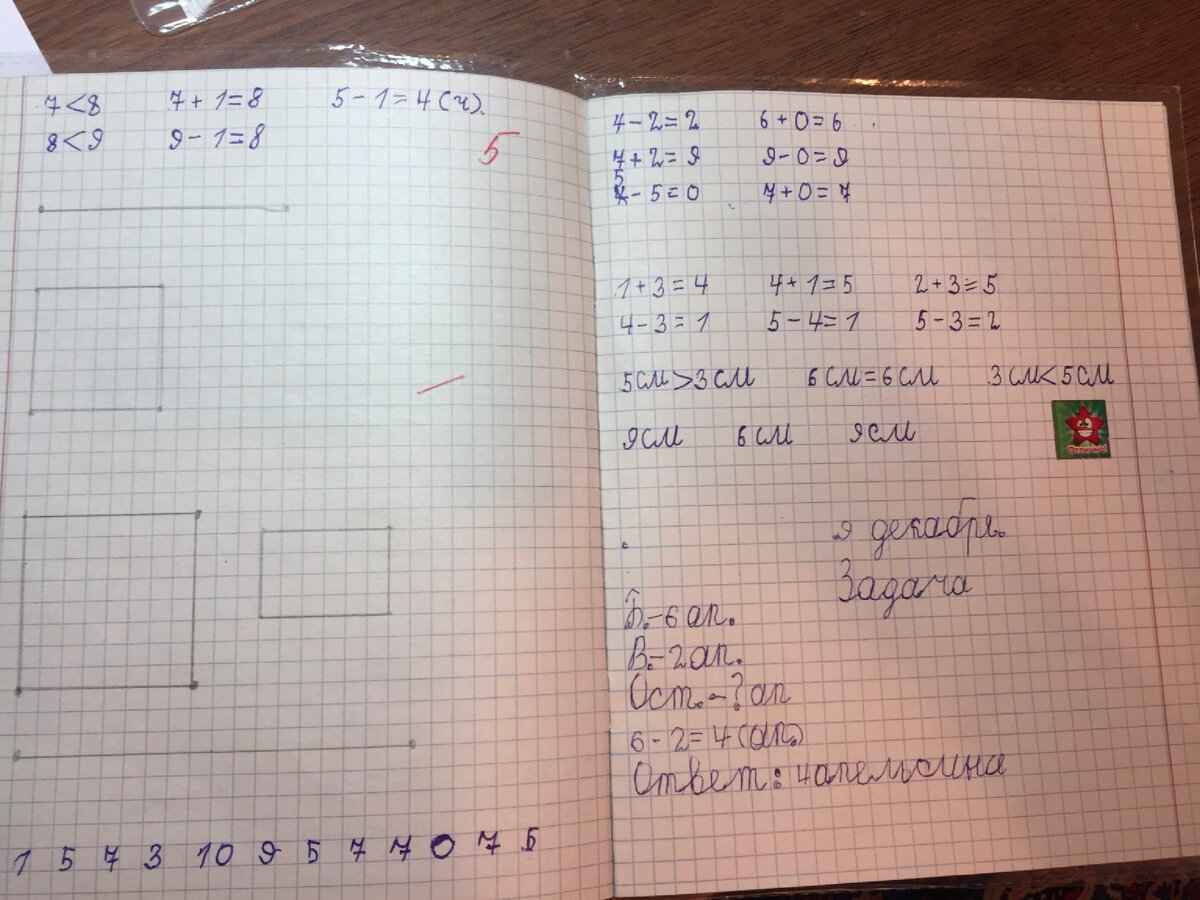 7<8 7+1=8 5-1=4(ч).
8<9 9-1=8
5
1 5 7 3 10 9 5 7 7 0 7 5
4-2=2 6+0=6
7+2=9 9-0=9
5
-5=0 7+0=7
1+3=4 4+1=5 2+3=5
4-3=1 5-4=1 5-3=2
5см>3см 6см=6см 3см<5см
9см 6см 9см
Отлично!
9 декабря.
Задача
Б.-6ап.
В.-2ап.
Ост.-?ап
6-2=4(ап.)
Ответ: 4апельсина